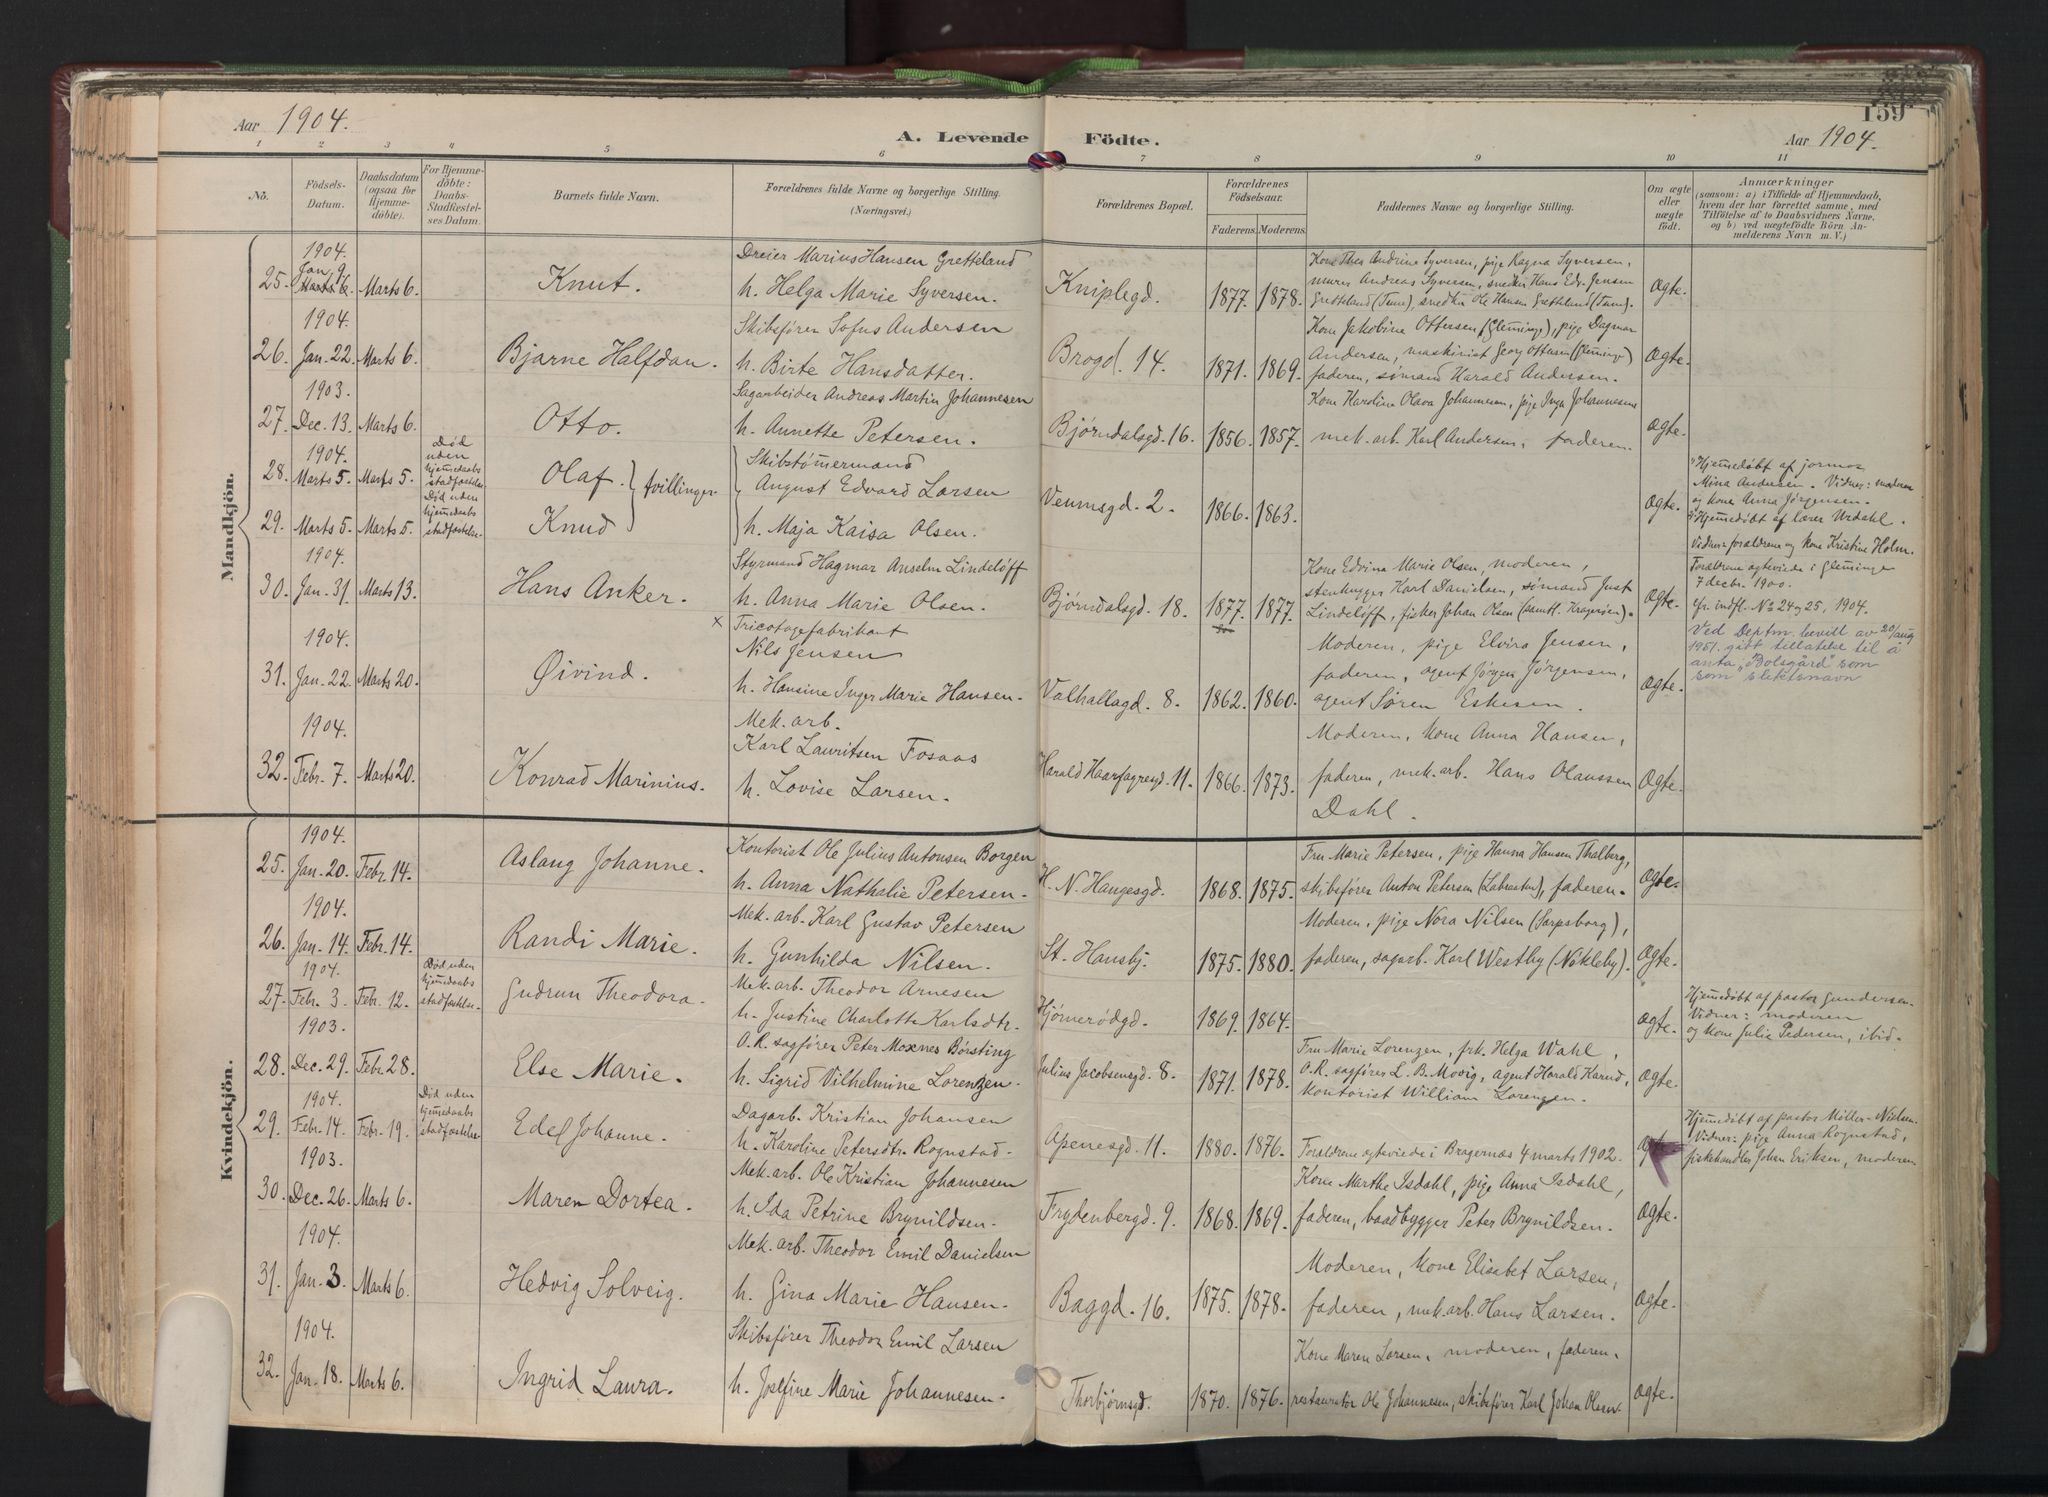 159
Aar 1904.
A. Levende Födte.
Aar 1904.
1 2 3 4 5 6 7 8 9 10 11
No.
Födsels-
Datum.
Daabsdatum
(ogsaa for
Hjemme-
döbte).
For Hjemme-
döbte:
Daabs-
Stadfæstel-
ses Datum.
Barnets fulde Navn.
Forældrenes fulde Navne og borgerlige Stilling.
(Næringsvei.)
Forældrenes Bopæl.
Forældrenes
Födselsaar.
Faderens. Moderens.
Faddernes Navne og borgerlige Stilling.
Om ægte
eller
uægte
födt.
Anmærkninger
(saasom: a) i Tilfælde af Hjemmedaab,
hvem der har forrettet samme, med
Tilföielse af to Daabsvidners Navne,
og b) ved uægtefödte Börn An-
melderens Navn m. V.)
Mandkjön.
1904.
Jan 9
25. Marts 6. Marts 6.
Knut.
Dreier Marius Hansen Gretteland
h. Helga Marie Syversen.
Kniplegd.
1877. 1878.
Kone Thea Andrine Syversen, pige Ragna Syversen,
murer Andreas Syversen, snedker Hans Edv. Jensen
Gretteland (Tune), snedker Ole Hansen Gretteland (Tune).
Ægte.
1904.
26. Jan. 22. Marts 6.
Bjarne Halfdan.
Skibsfører Sofus Andersen
h. Birte Hansdatter.
Brogd. 14.
1871. 1869.
Kone Jakobine Ottersen (Glemminge), pige Dagmar
Andersen, maskinist Georg Ottersen (Glemminge)
faderen, sømand Harald Andersen.
Ægte.
1903.
27. Dec. 13. Marts 6.
Otto.
Sagarbeider Andreas Martin Johannesen
h. Annette Petersen.
Bjørndalsgd. 16.
1856. 1857.
Kone Karoline Olava Johannesen, pige Inga Johannesen
mek. arb. Karl Andersen, faderen.
Ægte.
1904.
28. Marts 5. Marts 5.
Død
uden
hjemmedaabs
stadfæstelse
Olaf. } tvillinger.
Skibstømermand
August Edvard Larsen
29. Marts 5. Marts 5.
Død uden
hjemmedaabs
stadfæstelse.
Knud
h. Maja Kaisa Olsen.
Veumsgd. 2.
1866. 1863.
Ægte.
Hjemmedøbt af jormor
Mina Andersen. Vidner: moderen
og kone Anna Jørgensen.
Hjemmedøbt af lærer Urdahl.
Vidner: forældrene og kone Kristine Holm.
1904.
30. Jan. 31. Marts 13.
Hans Anker.
Styrmand Hagmar Anselm Lindelöff
h. Anna Marie Olsen.
Bjørndalsgd. 18.
1877. 1877.
Kone Edvina Marie Olsen, moderen,
stenhugger Karl Danielsen, sømand Just
Lindelöff, fisker Johan Olsen (samtl. Kragerøen).
Ægte.
Forældrene ægteviede i Glemminge
7 decbr. 1900.
cfr. indfl. No 24 og 25, 1904.
1904.
31. Jan. 22. Marts 20.
Øivind.
x Tricotagefabrikant
Nils Jensen
h. Hansine Inger Marie Hansen.
Valhallagd. 8.
1862. 1860.
Moderen, pige Elvira Jensen,
faderen, agent Jørgen Jørgensen,
agent Søren Eskesen.
Ægte.
Ved Deptm. bevill av 20/aug
1951. gitt tillatelse til å
anta "Bolsgård" som
som slektsnavn
1904.
32. Febr. 7. Marts 20.
Konrad Marinius.
Mek. arb.
Karl Lauritsen Fosaas
h. Lovise Larsen.
Harald Haarfagresgd. 11.
1866. 1873.
Moderen, kone Anna Hansen,
faderen, mek. arb. Hans Olaussen
Dahl.
Ægte.
Kvindekjön.
1904.
25. Jan. 20. Febr. 14.
Aslaug Johanne.
Kontorist Ole Julius Antonsen Borgen
h. Anna Nathalie Petersen.
H. N. Haugesgd.
1868. 1875.
Fru Marie Petersen, pige Hanna Hansen Thalberg,
skibsfører Anton Petersen (Labrasten), faderen.
Ægte.
1904.
26. Jan. 14. Febr. 14.
Randi Marie.
Mek. arb. Karl Gustav Petersen
h. Gunhilda Nilsen.
St. Hansbj.
1875. 1880.
Moderen, pige Nora Nilsen (Sarpsborg),
faderen, sagarb. Karl Westby (Nøkleby).
Ægte.
1904.
27. Febr. 3. Febr. 12.
Død uden
hjemmedaabs
stadfæstelse.
Gudrun Theodora.
Mek. arb. Theodor Arnesen
h. Justine Charlotte Karlsdtr.
Hjømerødgd.
1869. 1864.
Ægte.
Hjemmedøbt af pastor Gundersen.
Vidner: moderen
og kone Julie Pedersen, ibid.
1903.
28. Dec. 29. Febr 28.
Else Marie.
O.R. sagfører Peter Moxnes Børsting
h. Sigrid Vilhelmine Lorenzen.
Julius Jacobsensgd. 8.
1871. 1878.
Fru Marie Lorenzen, frk. Helga Wahl,
O.R. sagfører L. B. Movig, agent Harald Karud,
kontorist William Lorenzen.
Ægte.
1904.
29. Febr. 14. Febr. 19.
Død uden
hjemmedaabs
stadfæstelse
Edel Johanne.
Dagarb. Kristian Johansen
h. Karoline Petersdtr. Rognstad.
Apenesgd. 11.
1880. 1876.
Forældrene ægteviede i Bragernæs 4 marts 1902.
Ægte
Hjemmedøbt af pastor Møller-Nielsen.
Vidner: pige Anna Rognstad,
fiskehandler Johan Eriksen, moderen
1903.
30. Dec. 26. Marts 6.
Maren Dortea.
Mek. arb. Ole Kristian Johannesen
h. Ida Petrine Brynildsen.
Frydenbergd. 9.
1868. 1869.
Kone Marthe Isdahl, pige Anna Isdahl,
faderen, baadbygger Peter Brynildsen.
Ægte.
1904.
31. Jan. 3. Marts 6.
Hedvig Solveig.
Mek. arb. Theodor Emil Danielsen
h. Gina Marie Hansen.
Baggd. 16.
1875. 1878.
Moderen, kone Elisabet Larsen,
faderen, mek. arb. Hans Larsen.
Ægte.
1904.
32. Jan. 18. Marts 6.
Ingrid Laura.
Skibsfører Theodor Emil Larsen
h. Josefine Marie Johannesen.
Thorbjørnsgd.
1870. 1876.
Kone Maren Larsen, moderen, faderen,
restauratør Ole Johannesen, skibsfører Karl Johan Olsen.
Ægte.